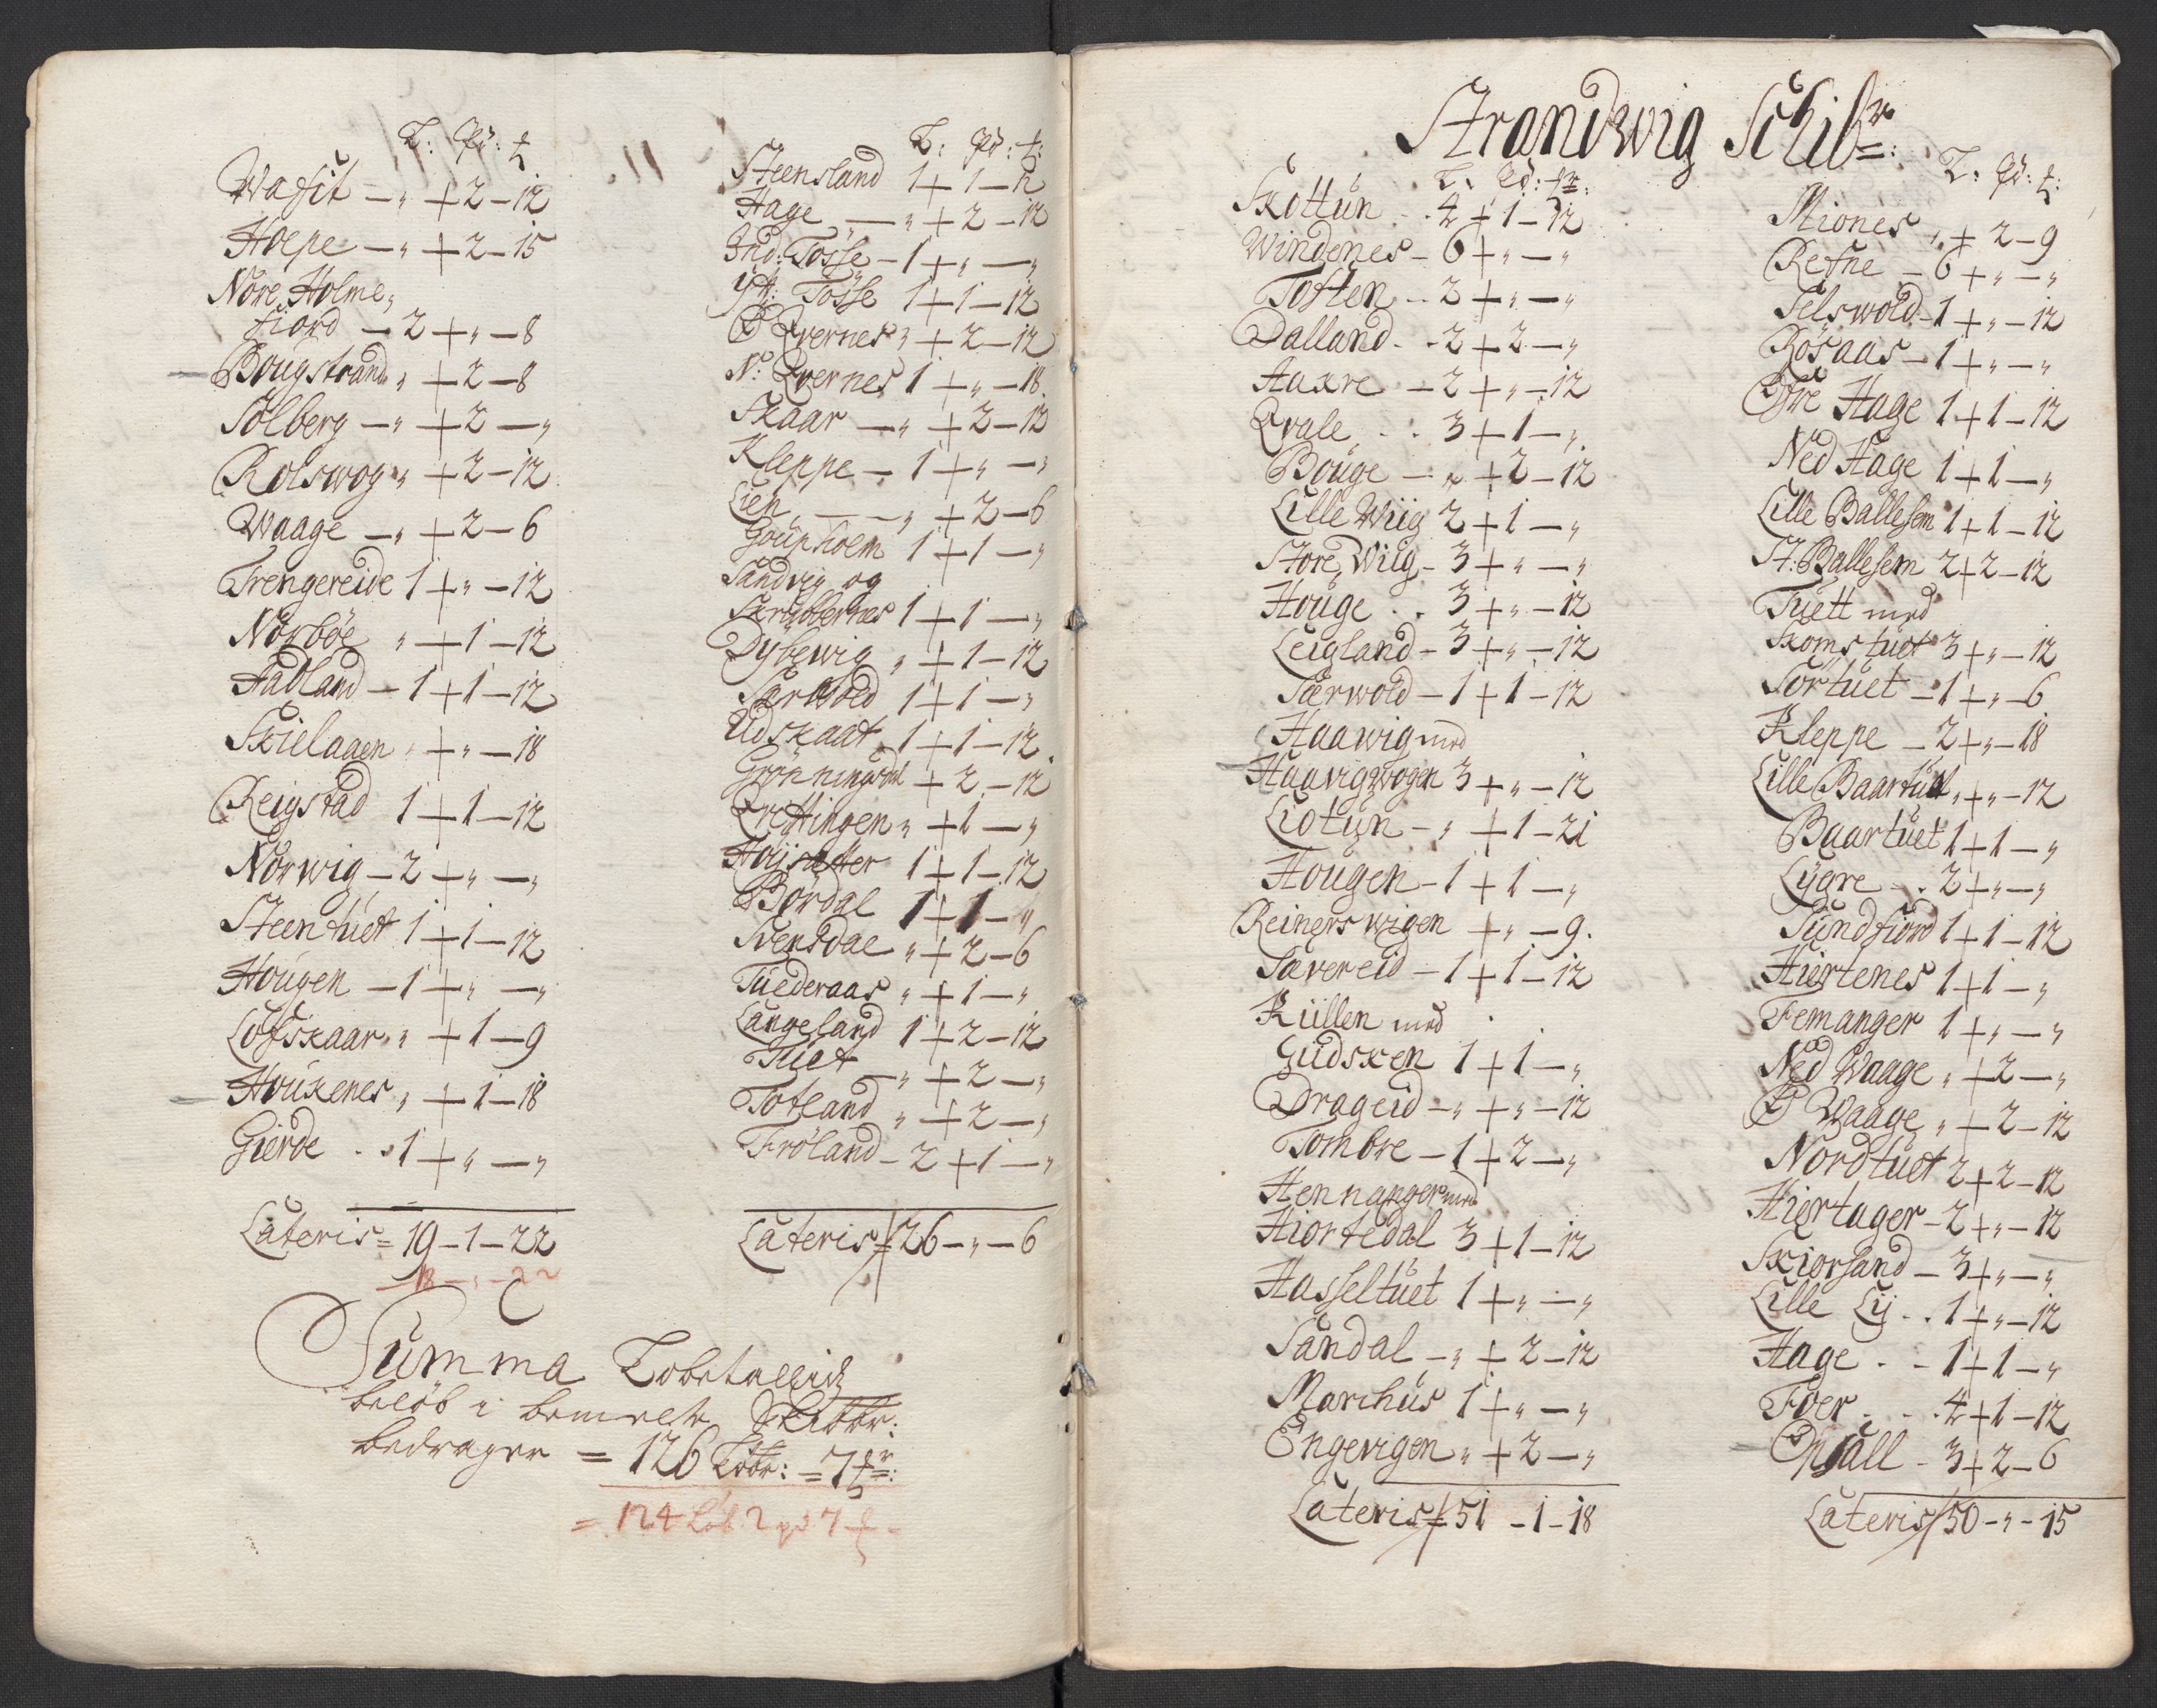 L: Pd: ℔
Wafit — „ + 2 — 12
Hope — „ + 2 — 15
Nore Holme„
fiord — 2 + „ — 8
Bougstrand „ + 2 — 8
Solberg — „ + 2 — „
Rolswog „ + 2 — 12
Waage — „ + 2 — 6
Trengereide 1 + „ — 12
Norböe „ + 1 — 12
Hadland — 1 + 1 — 12
Skielaaen „ + „ — 18
Reigstad 1 + 1 — 12
Norwig — 2 + „ — „
Steentuet 1 + 1 — 12
Hougen — 1 + „ — „
Lofskaar „ + 1 — 9
Houkenes „ + 1 — 18
Gierde . . 1 + „ — „
Lateris = 19 — 1 — 22
18 — „ — 22
L: Pd: ℔:
Steensland 1 + 1 — 12
Hage — „ + 2 — 12
Ind: Tosse — 1 + „ — „
Ytt: Tösse 1 + 1 — 12
Ö Qvernes „ + 2 — 12
N: Qvernes 1 + „ — 18
Skaar — „ + 2 — 12
Kleppe — 1 + „ — „
Lien — — „ + 2 — 6
Goupholm 1 + 1 — „
Sandvig og
Skrubbernes 1 + 1 — „
Dybewig „ + 1 — 12
Særwold 1 + 1 — „
Udskaat 1 + 1 — 12
Grönningsdal + 2 — 12
Qvittingen „ + 1 — „
Höysætter 1 + 1 — 12
Bordal 1 + 1 — „
Svensdal „ + 2 — 6
Tuederaas „ + 1 — „
Langeland 1 + 2 — 12
Tuet — „ + 2 — „
Totland „ + 2 — „
Fröland — 2 + 1 — „
Lateris = 26 — „ — 6
Summa Löbetallid
belöb i bemelte Skibbr:
bedrager = 126 Löbr: = 7 ℔r:
= 124 Löb 2 pd 7 ℔ —
Strandwig Schibr:
L: Pd: ℔r:
Skottun . . 4 + 1 — 12
Windenes — 6 + „ — „
Toften . . 2 + „ — „
Dalland . . 2 + 2 — „
Aaxre — 2 + „ — 12
Qvale . . 3 + 1 — „
Bouge — „ + 2 — 12
Lille Wiig 2 + 1 — „
Store Wiig — 3 + „ — „
Houge . . 3 + „ — 12
Leigland — 3 + „ — 12
Særwold — 1 + 1 — 12
Haawig med
Haavigwogen 3 + „ — 12
Liotun — „ + 1 — 21
Hougen — 1 + 1 — „
Reinerswigen + „ — 9.
Sævereid — 1 + 1 — 12
Küllen med
Gudsken 1 + 1 — „
Drageid — „ + „ — 12
Tombre — 1 + 2 — „
Hennanger med
Hiortedal 3 + 1 — 12
Hasseltuet 1 + „ — „
Sandal — „ + 2 — 12
Marchus 1 + „ — „
Engevigen „ + 2 — „
Lateris = 51 — 1 — 18
L: Pd: ℔:
Miones „ + 2 — 9
Refne — 6 + „ — „
Selswold — 1 + „ — 12
Rösaas — 1 + „ — „
Öfre Hage 1 + 1 — 12
Ned Hage 1 + 1 — „
Lille Ballesem 1 + 1 — 12
St: Ballesem 2 + 2 — 12
Tuett med
Skomstuet 3 + „ — 12
Sörtuet — 1 + „ — 6
Kleppe — 2 + „ — 18
Lille Baartuet „ + „ — 12
Baartuet 1 + 1 — „
Lygre — . 2 + „ — „
Sundfiord 1 + 1 — 12
Hiertenes 1 + 1 — „
Femanger 1 + „ — „
Ned Waage „ + 2 — „
Ö Waage „ + 2 — 12
Nordtuet 2 + 2 — 12
Hiertager — 2 + „ — 12
Skiorsand — 3 + „ — „
Lille Ly . . 1 + „ — 12
Hage . — 1 + 1 — „
Foer . . . 4 + 1 — 12
Opsall — 3 + 2 — 6
Lateris 50 — „ — 15